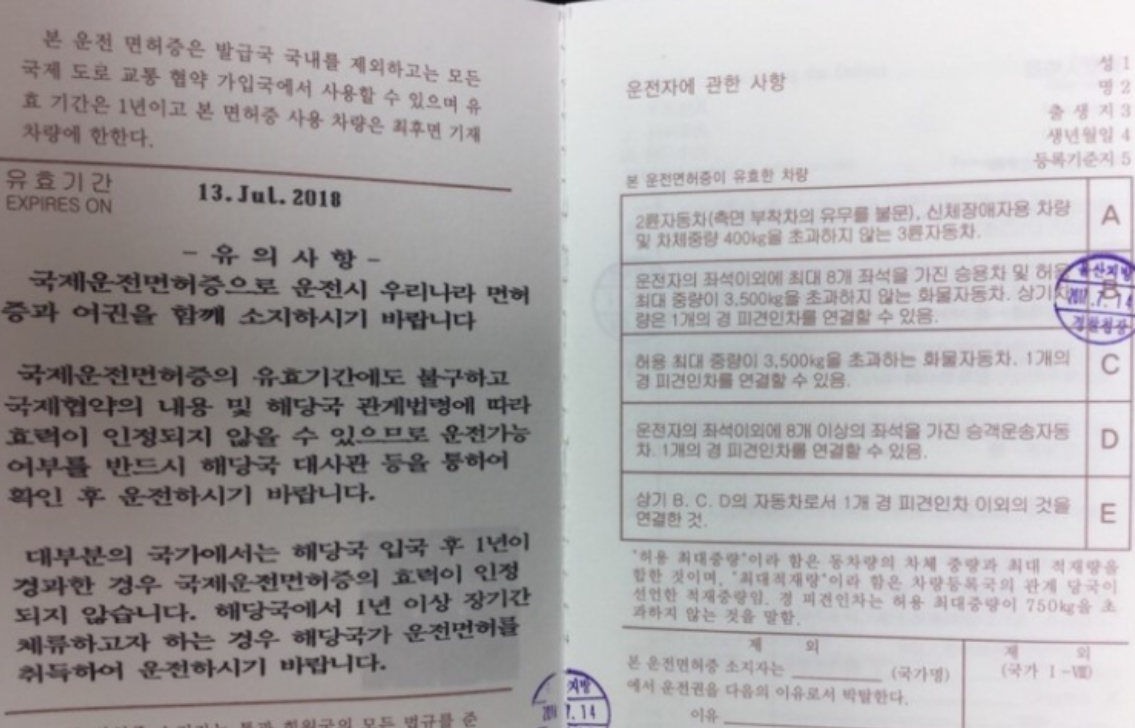 본 운전 면허증은 발급국 국내를 제외하고는 모든
국제 도로 교통 협약 가입국에서 사용할 수 있으며 유
효 기간은 1년이고 본 면허증 사용 차량은 최후면 기재
차량에 한한다.
유효기간
EXPIRES ON
13. Jul. 2018
- 유 의 사 항 -
국제운전면허증으로 운전시 우리나라 면허
증과 여권을 함께 소지하시기 바랍니다
국제운전면허증의 유효기간에도 불구하고
국제협약의 내용 및 해당국 관계법령에 따라
효력이 인정되지 않을 수 있으므로 운전가능
여부를 반드시 해당국 대사관 등을 통하여
확인 후 운전하시기 바랍니다.
대부분의 국가에서는 해당국 입국 후 1년이
경과한 경우 국제운전면허증의 효력이 인정
되지 않습니다. 해당국에서 1년 이상 장기간
체류하고자 하는 경우 해당국가 운전면허를
취득하여 운전하시기 바랍니다.
지방
7.14
운전자에 관한 사항
성 1
명 2
출 생 지 3
생년월일 4
등록기준지 5
본 운전면허증이 유효한 차량
2륜자동차(측면 부착차의 유무를 불문), 신체장애자용 차량
및 차체중량 400kg을 초과하지 않는 3륜자동차.
A
운전자의 좌석이외에 최대 8개 좌석을 가진 승용차 및 허용
최대 중량이 3,500kg을 초과하지 않는 화물자동차. 상기차
량은 1개의 경 피견인차를 연결할 수 있음.
B
울산지방
2017.7.14
경찰청장
허용 최대 중량이 3,500kg을 초과하는 화물자동차. 1개의
경 피견인차를 연결할 수 있음.
C
운전자의 좌석이외에 8개 이상의 좌석을 가진 승객운송자동
차. 1개의 경 피견인차를 연결할 수 있음.
D
상기 B. C. D의 자동차로서 1개 경 피견인차 이외의 것을
연결한 것.
E
"허용 최대중량"이라 함은 동차량의 차체 중량과 최대 적재량을
합한 것이며, "최대적재량"이라 함은 차량등록국의 관계 당국이
선언한 적재중량임. 경 피견인차는 허용 최대중량이 750kg을 초
과하지 않는 것을 말함.
제 외
본 운전면허증 소지자는 ________ (국가명)
에서 운전권을 다음의 이유로서 박탈한다.
이유 ________
제 외
(국가 I-Ⅷ)